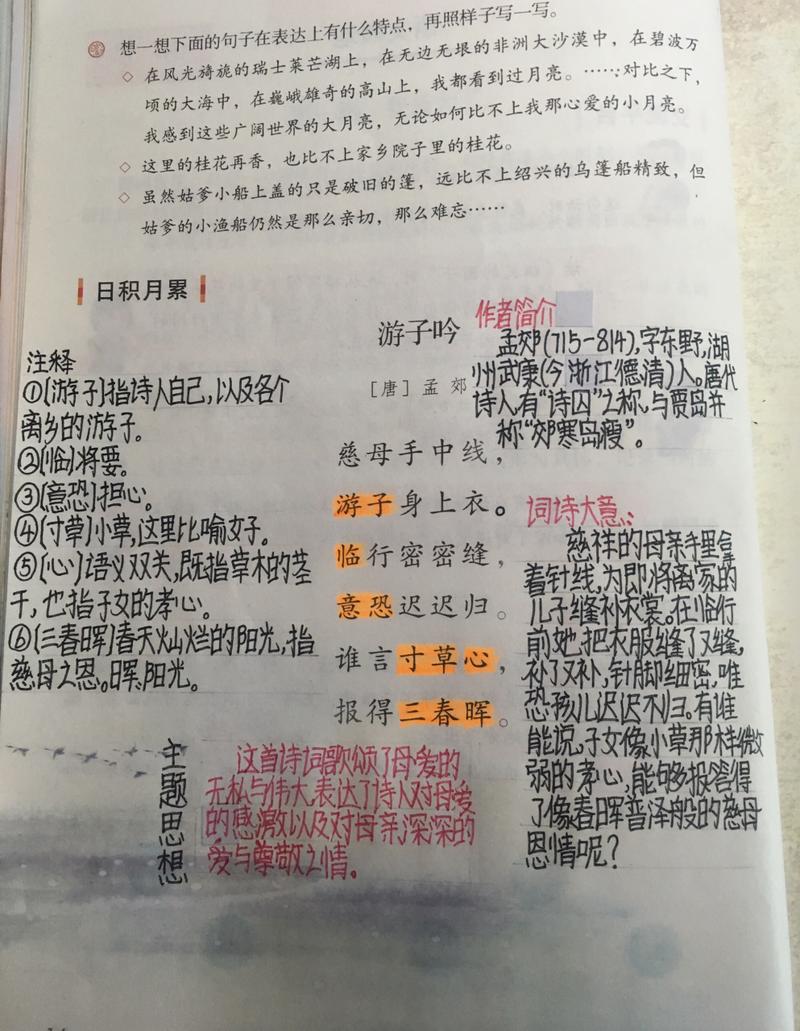 想一想下面的句子在表达上有什么特点,再照样子写一写。
◇ 在风光旖旎的瑞士莱芒湖上,在无边无垠的非洲大沙漠中,在碧波万
顷的大海中,在巍峨雄奇的高山上,我都看到过月亮。……对比之下,
我感到这些广阔世界的大月亮,无论如何比不上我那心爱的小月亮。
◇ 这里的桂花再香,也比不上家乡院子里的桂花。
◇ 虽然姑爹小船上盖的只是破旧的篷,远比不上绍兴的乌篷船精致,但
姑爹的小渔船仍然是那么亲切,那么难忘……
日积月累
游子吟
[唐] 孟 郊
慈母手中线,
游子身上衣。
临行密密缝,
意恐迟迟归。
谁言寸草心,
报得三春晖。
注释
①(游子)指诗人自己,以及各个
离乡的游子。
②(临)将要。
③(意恐)担心。
④(寸草)小草,这里比喻女子。
⑤(心)语义双关,既指草木的茎
干,也指子女的孝心。
⑥(三春晖)春天灿烂的阳光,指
慈母之恩。晖,阳光。
作者简介
孟郊(715-814),字东野,湖
州武康(今浙江德清)人。唐代
诗人,有“诗囚”之称,与贾岛并
称“郊寒岛瘦”。
词诗大意:
慈祥的母亲手里拿
着针线,为即将离家的
儿子缝补衣裳。在临行
前她把衣服缝了又缝,
补了又补,针脚细密,唯
恐孩儿迟迟不归。有谁
能说,子女像小草那样微
弱的孝心,能够报答得
了像春晖普泽般的慈母
恩情呢?
主题思想
这首诗词歌颂了母爱的
无私与伟大,表达了诗人对母爱
的感激以及对母亲深深的
爱与尊敬之情。